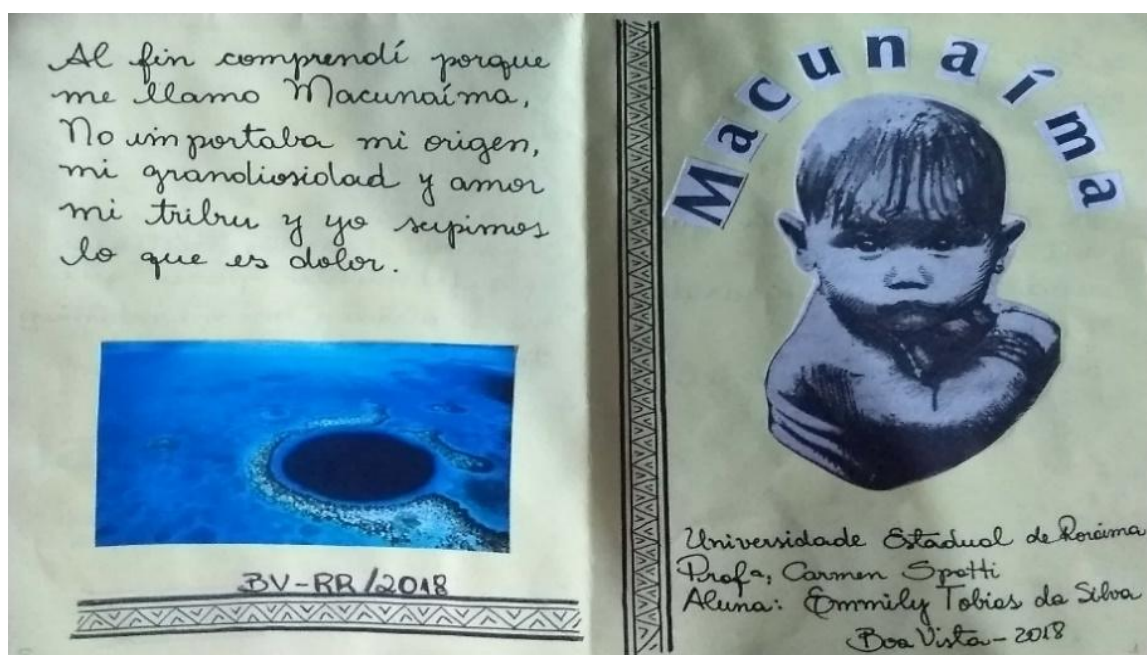 Al fin comprendí porque
me llamo Macunaíma,
No importaba mi origen,
mi grandiosidad y amor
mi tribu y yo supimos
lo que es dolor.
BV-RR/2018
Macunaíma
Universidade Estadual de Roraima
Profª; Carmen Spotti
Aluna: Emmily Tobias da Silva
Boa Vista - 2018